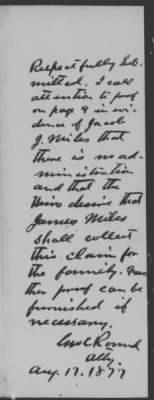 Respectfully Sub-
mitted. I call
attention to proof
on page 9 in evi-
dence of Jacob
J. Miles that
there is no ad-
ministration
and that the
Heirs desire that
James Miles
shall collect
this claim for
the family. Fur
ther proof can be
furnished if
necessary.
Atty.
Aug. 17. 1877